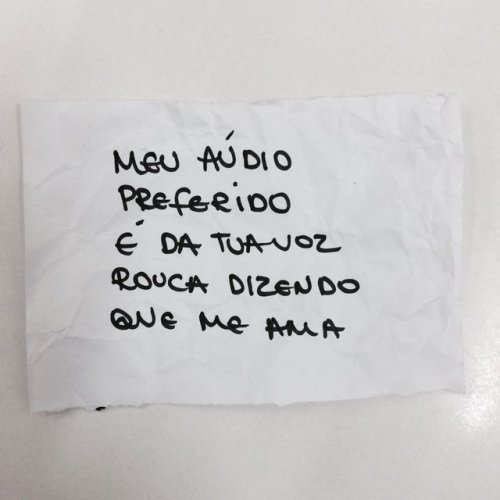 MEU AÚDIO
PREFERIDO
É DA TUA VOZ
ROUCA DIZENDO
QUE ME AMA